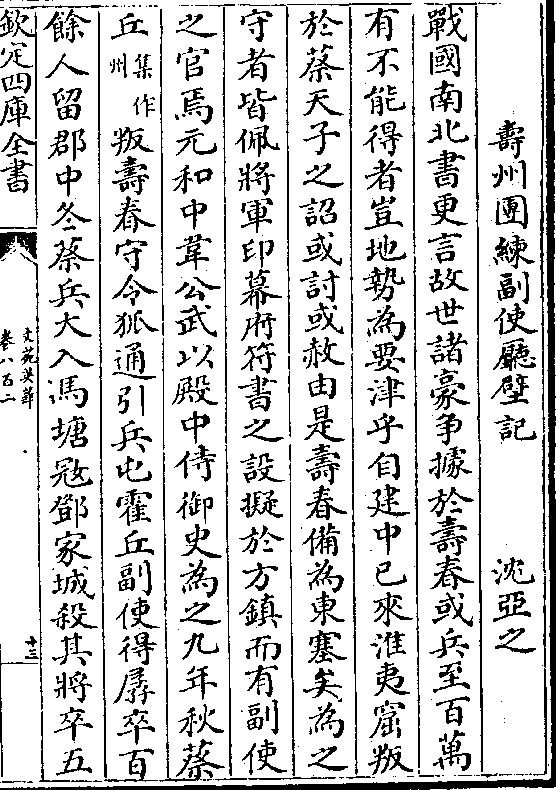 壽州團練副使廳壁記　沈亞之
戰國南北書更言故世諸豪爭據於壽春或兵至百萬
有不能得者豈地勢為要津乎自建中已來淮夷窟叛
於蔡天子之詔或討或赦由是壽春備為東塞矣為之
守者皆佩將軍印幕府符書之設擬於方鎮而有副使
之官焉元和中韋公武以殿中侍御史為之九年秋蔡
丘集作州叛壽春守令狐通引兵屯霍丘副使得孱卒百
餘人留郡中冬蔡兵大入馮塘㓂鄧家城殺其將卒五
欽定四庫全書
文苑英華
卷八百二
十三